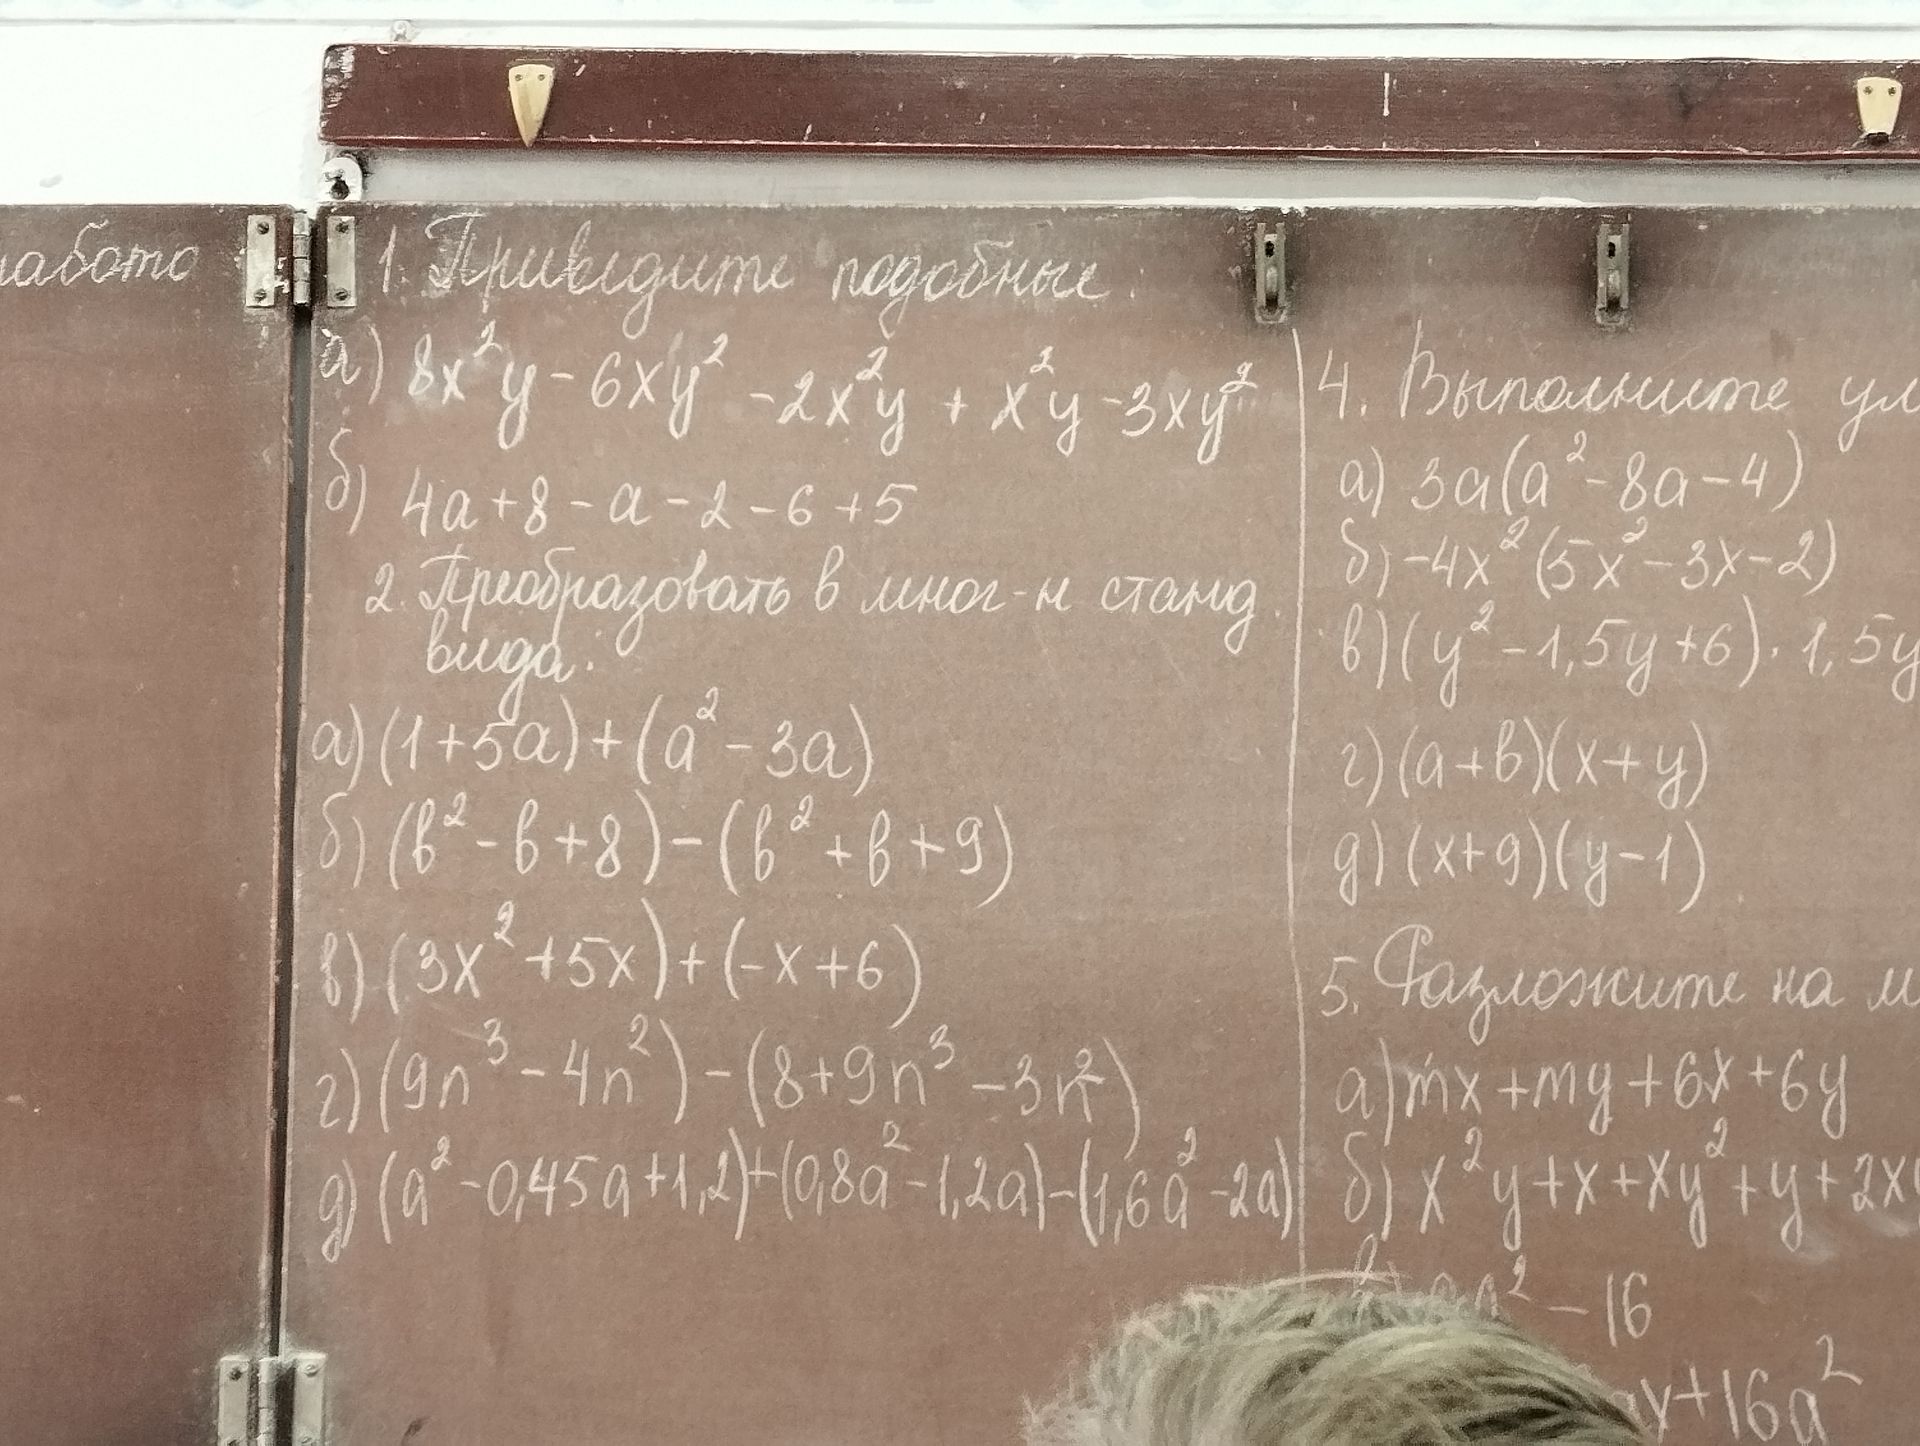 1. Приведите подобные.
а) 8x²y - 6xy² - 2x²y + x²y - 3xy²
б) 4a + 8 - a - 2 - 6 + 5
2. Преобразовать в мног-н станд.
вида:
а) (1+5a) + (a² - 3a)
б) (b² - b + 8) - (b² + b + 9)
в) (3x² + 5x) + (-x + 6)
г) (9n³ - 4n²) - (8 + 9n³ - 3n²)
д) (a² - 0,45a + 1,2) + (0,8a² - 1,2a) - (1,6a² - 2a)
4. Выполните
а) 3a(a² - 8a - 4)
б) -4x²(5x² - 3x - 2)
в) (y² - 1,5y + 6) · 1,5y
г) (a + b)(x + y)
д) (x + 9)(y - 1)
5. Разложите на
а) mx + my + 6x + 6y
б) x²y + x + xy² + y + 2x
² - 16
y + 16a²